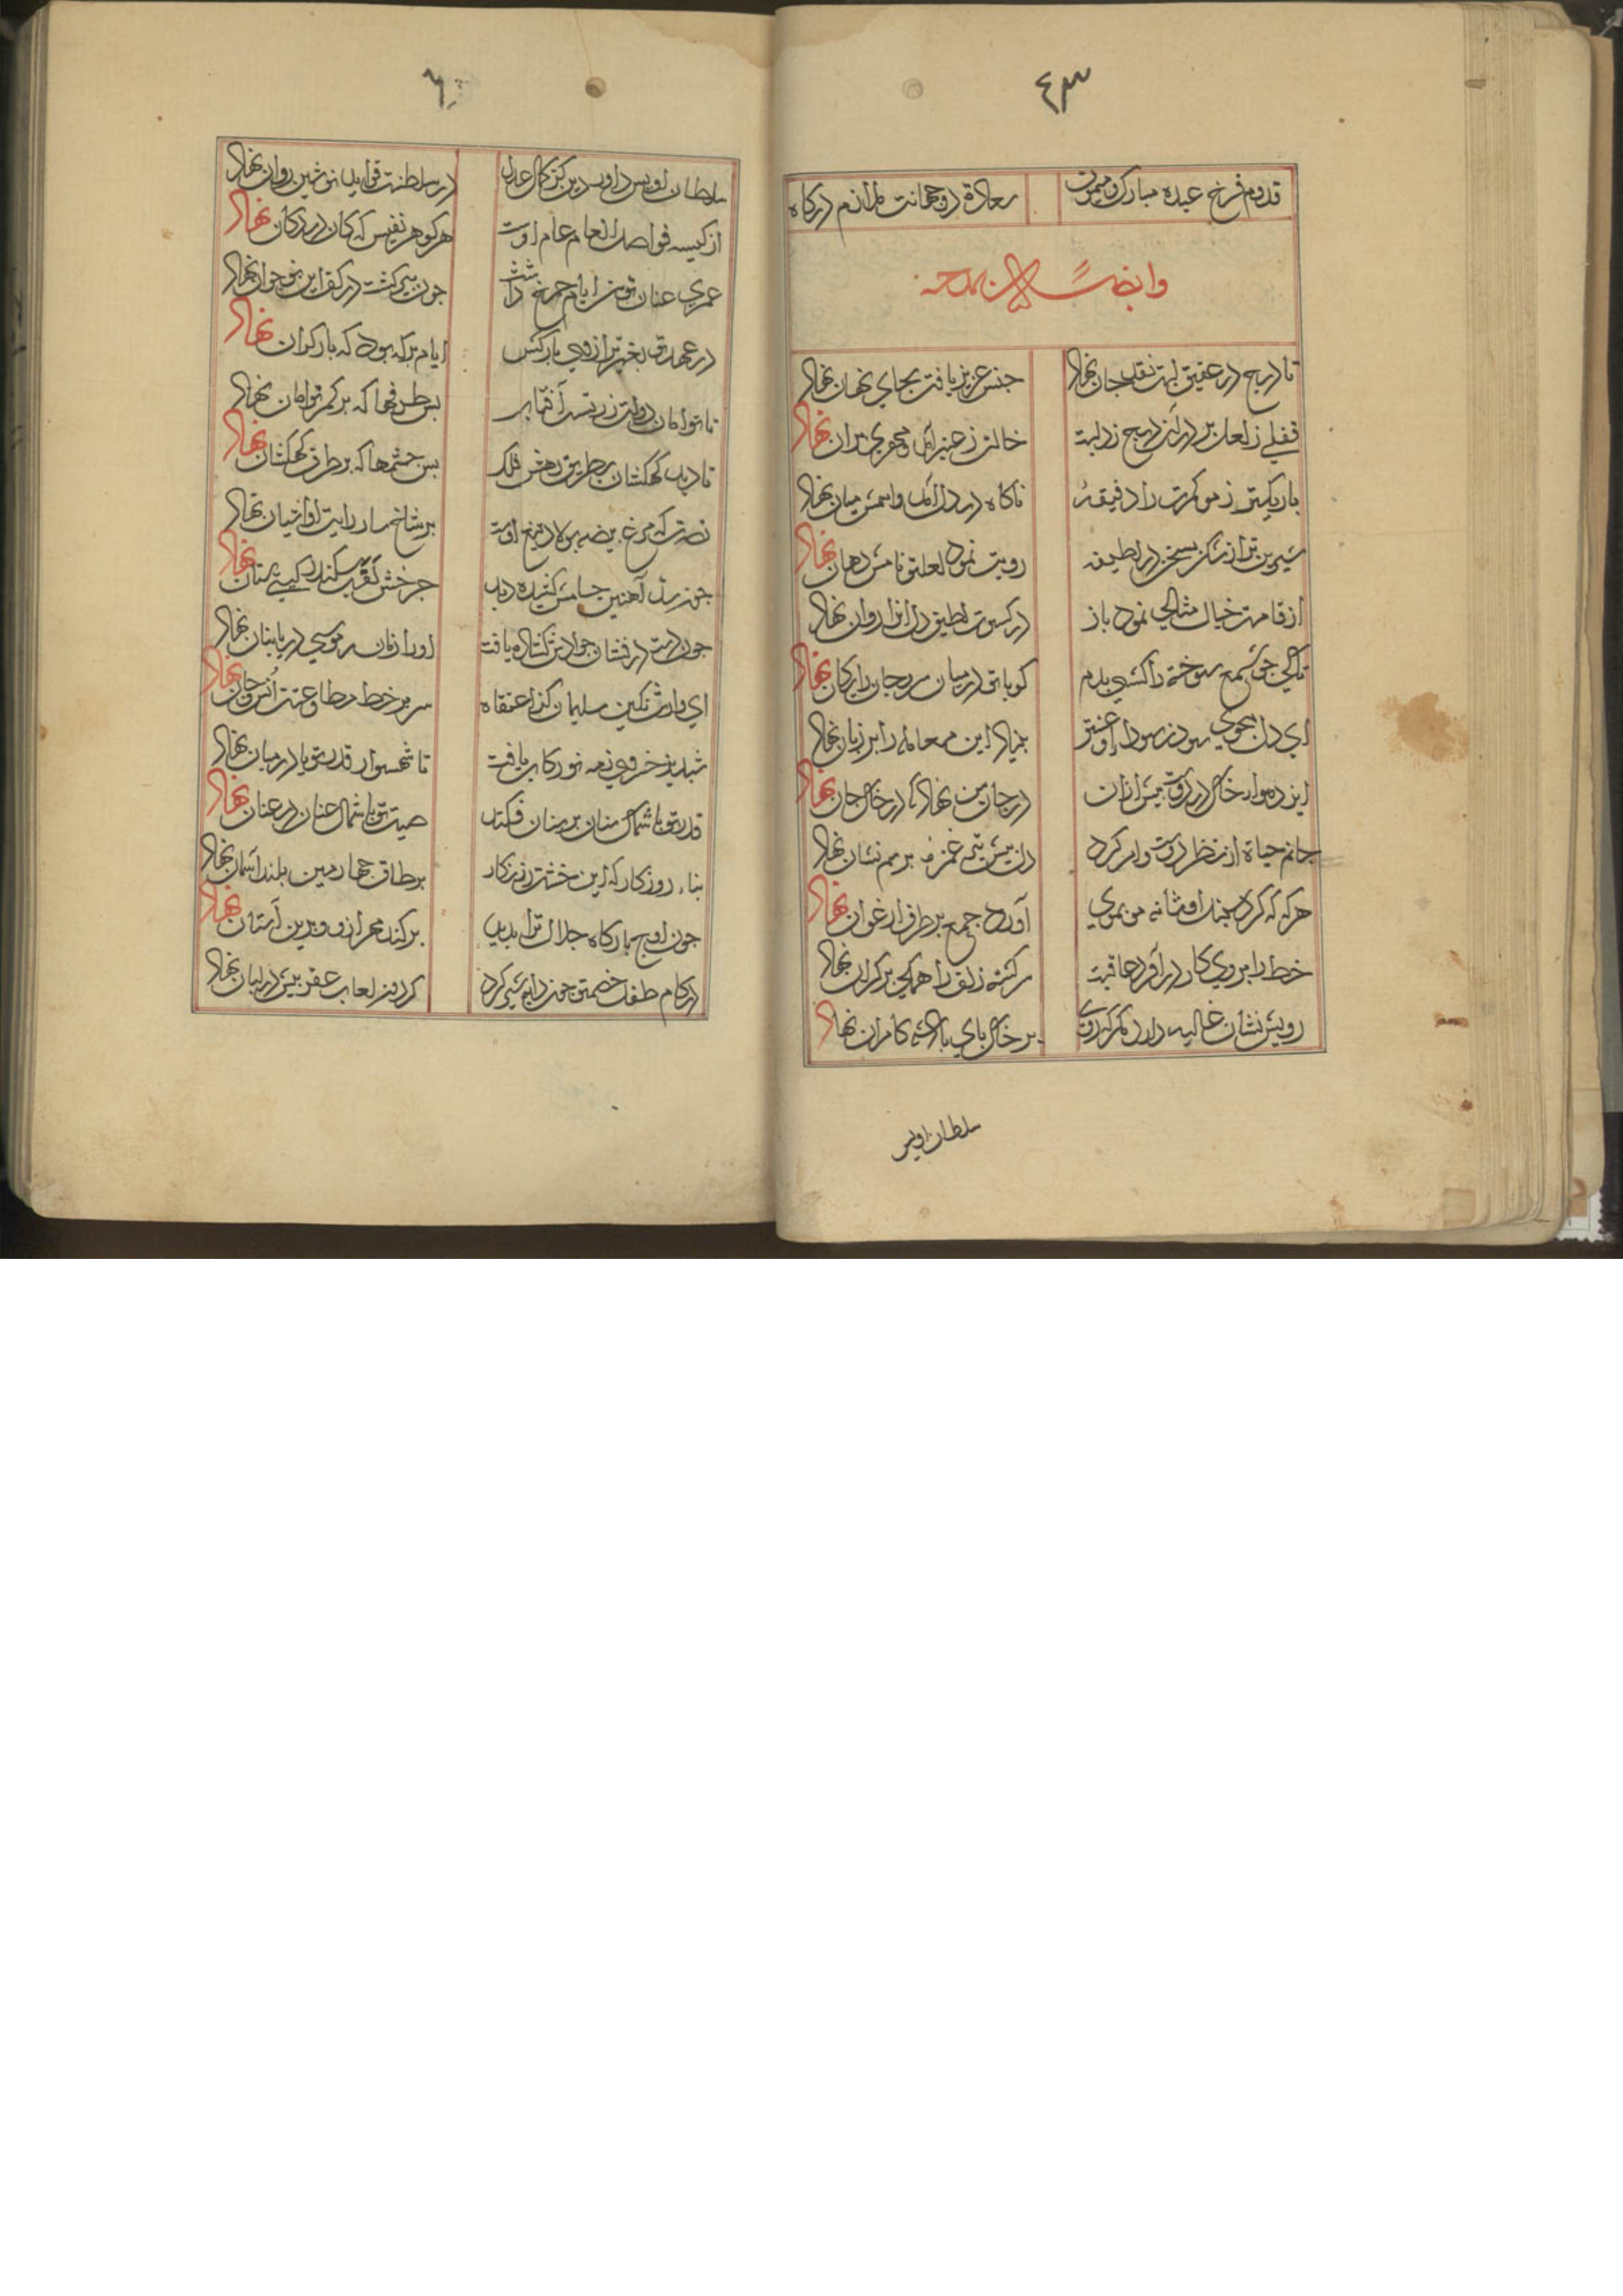 ٤٣
قدوم فرخ عیده مبارک و میمون    سعادة دوجهانت ملازم درکاه
وایضاً
تا درج در عقیق لبت نقد جان نهاد    جنس عزیز یافت بجای نهان نهاد
قفلی ز لعل بر در آن درج زد لبت    خالت ز عنبر آمد و مهری بران نهاد
باریکتر ز مو کمرت را دقیقهٔ    ناکاه در دل آمد و اسمش میان نهاد
شیرین تر از شکر بسخن در لطیفه    رویت نمود لعلت و نامش دهان نهاد
از قامت خیال مثالی نمود باز    در کسوت لطیف دل انرا روان نهاد
تا کی چو شمع سوخته را کشی بدم    کویا تو در میان
ای دل بجوی سود ز سودای او    بنیاد این معامله را بر زیان نهاد
ایزد موار خاک درکوت بیش ازان    در جان من نهاد که در خاک جان نهاد
جانم حیاة از نظر دوست وام کرد    دل پیش تیر غمزه برسم نشان نهاد
هر که که کرد او شانه من بموی    آورد جمع بر طرف ارغوان نهاد
خط را بروی کار درآورد عاقبت    سرکشته زلف را همکی بر کران نهاد
رویش نشان غالیه دارد مکر که روی    بر خاک بای بادشه کامران نهاد
سلطان اویس
٦
سلطان اویس داور دین کز کمال عدل    در سلطنت قواعد نوشین روان نهاد
از کیسه فواضل انعام عام اوست    هر کوهر نفیس که کان در دکان نهاد
عمری عنان توسن ایام چرخ داشت    جون پیر کشت در کف این نوجوان نهاد
در عهد تو بغیر ترازوی بارکش    ایام بر که بود که بار کران نهاد
تا توامان دولت زرین سر آفتاب    بس طرفها که بر کمر توامان نهاد
تا دید کهکشان بطریق رهش فلک    بس چشمها که بر طرق کهکشان نهاد
نصرت که مرغ بیضه پولاد تیغ اوست    بر شاخسار رایت او اشیان نهاد
چون سد آهنین حسامش کشیده دید    چرخش لقب سکندر کیتی ستان نهاد
جون دست درفشان جوادت کشاده یافت    او را زمان موسی دریا بنان نهاد
ای وارث نکین سلیمان که اعتقاد    سر بر خط مطاوعتت انس و جان نهاد
شبدیز خسروی ز مه نو رکاب یافت    تا شهسوار قدر تو پا در میان نهاد
قدر تو با سماک سنان بر سنان فکند    صیت تو با شمال عنان در عنان نهاد
بناء روزکار که این خشت زرنکار    بر طاق چهارمین بلند اسمان نهاد
جون اوج بارکاه جلال ترا بدید    برکند مهر ازو و برین آستان نهاد
در کام طفل خصمت چون دایه شیر کرد    کردون لعاب عقربیش در لبان نهاد